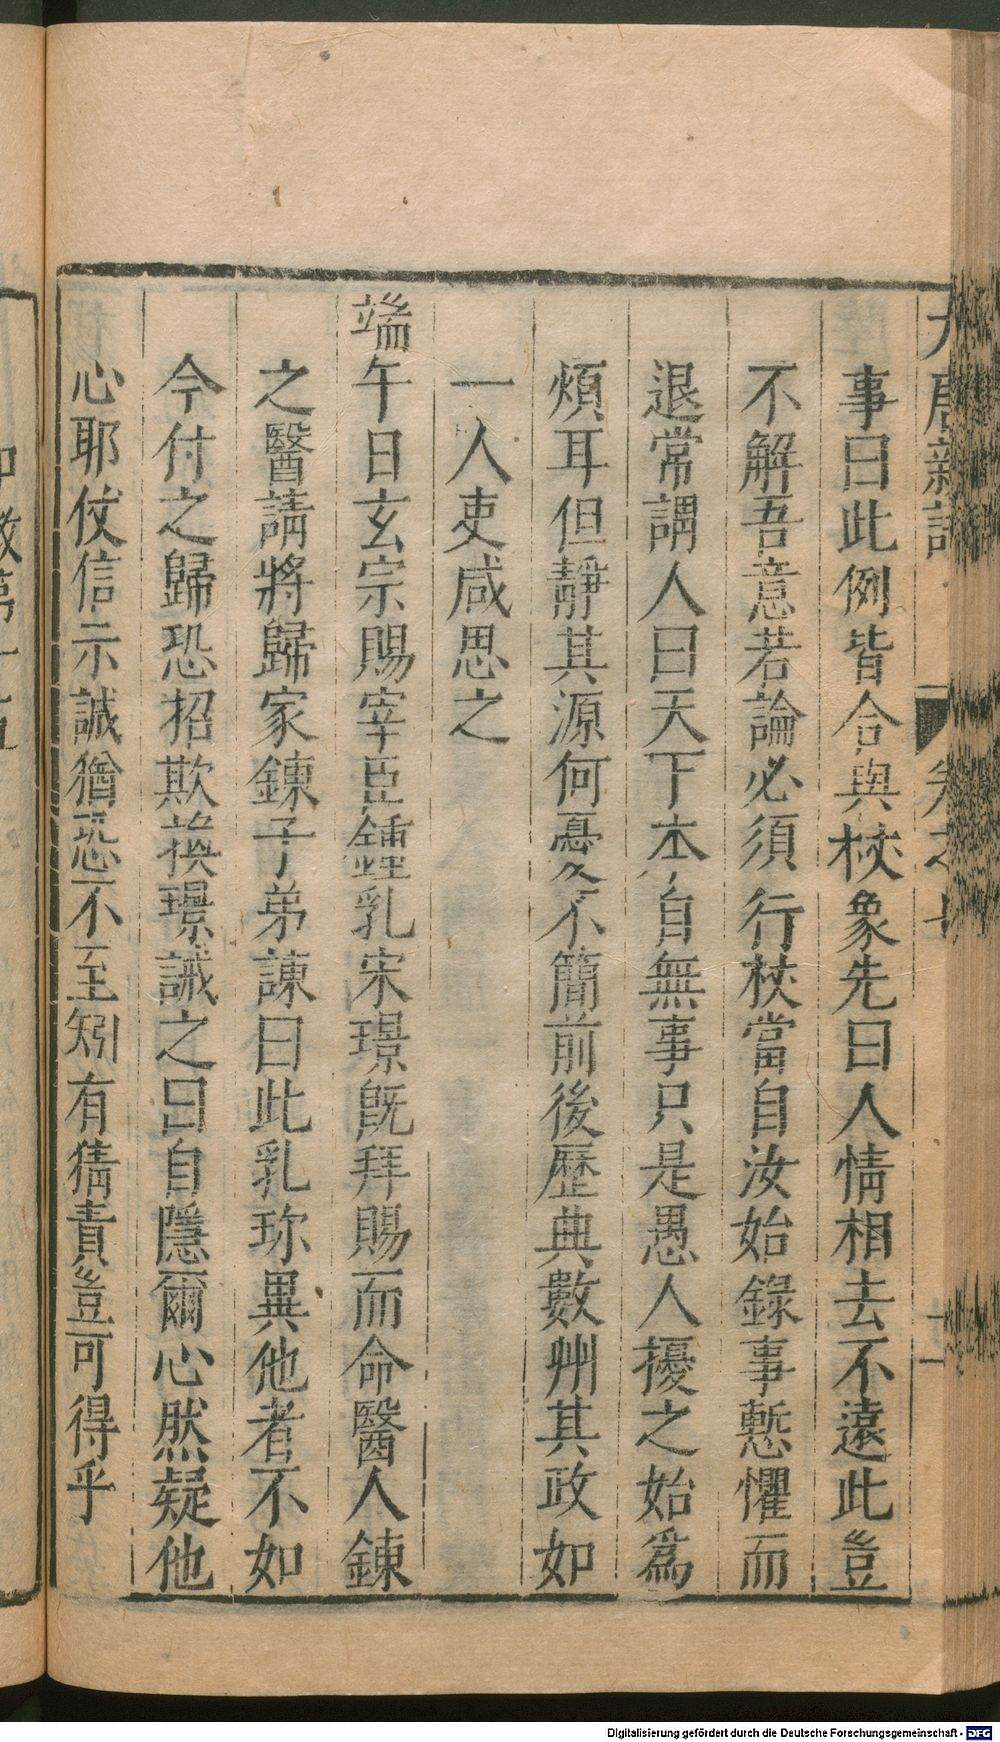 大唐新語 卷之七 十一
事曰此例皆合與杖象先曰人情相去不遠此豈
不解吾意若論必須行杖當自汝始錄事慙懼而
退常謂人曰天下本自無事只是愚人擾之始為
煩耳但靜其源何憂不簡前後歷典數州其政如
一人吏咸思之
端午日玄宗賜宰臣鍾乳宋璟既拜賜而命醫人鍊
之醫請將歸家鍊子弟諫曰此乳珎異他者不如
今付之歸恐招欺換璟誡之曰自隱爾心然疑他
心耶仗信示誠猶恐不至矧有猜責豈可得乎
Digitalisierung gefördert durch die Deutsche Forschungsgemeinschaft - DFG